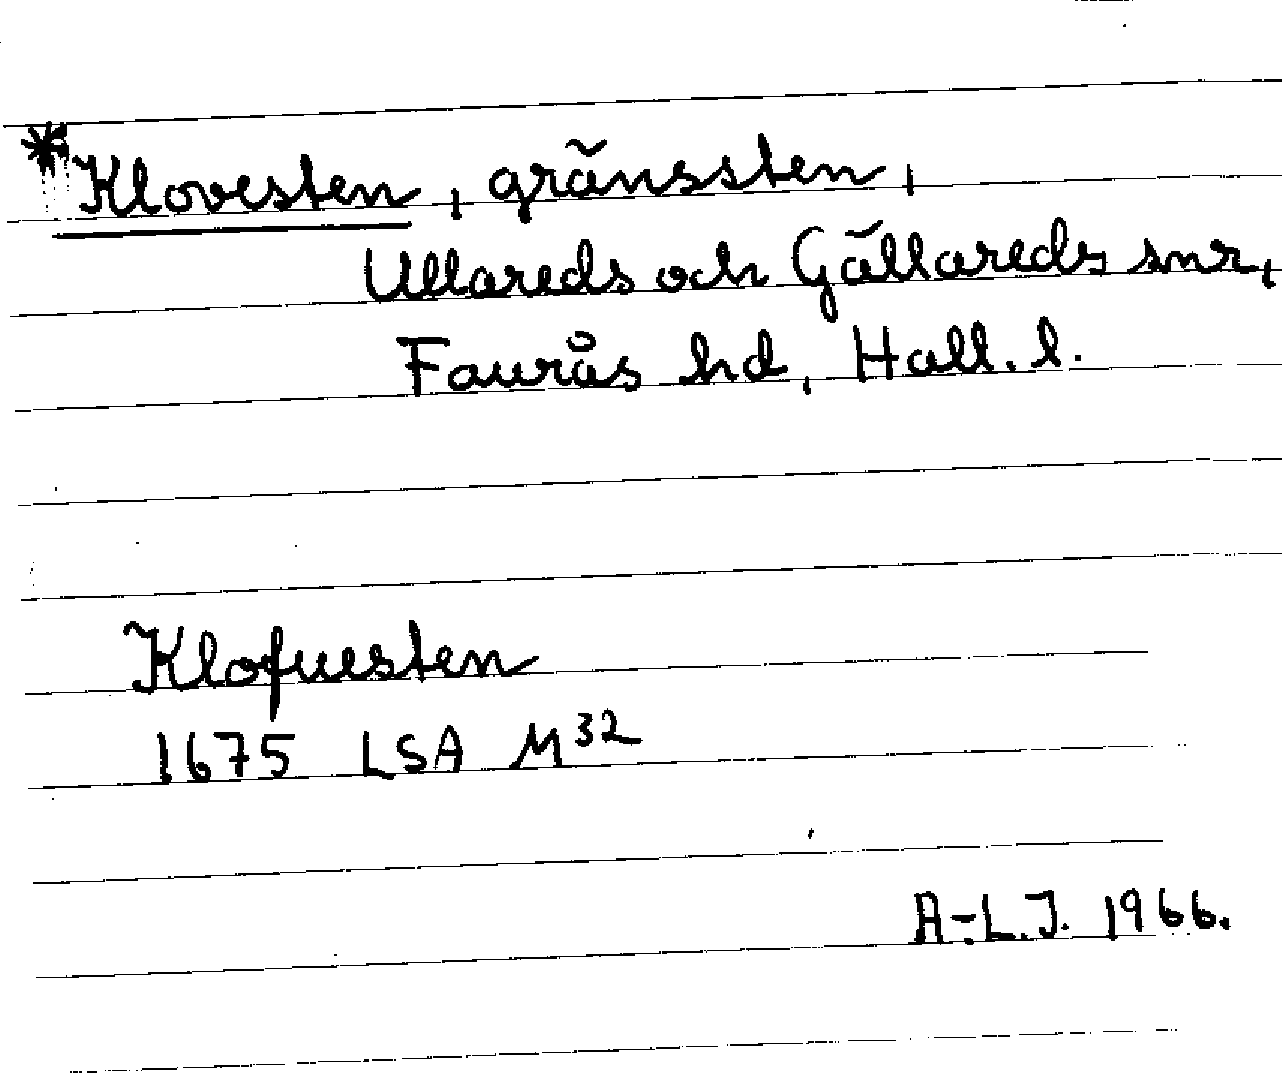 *Klovesten, gränssten,
Ullareds och Gällareds snr,
Faurås hd, Hall. l.
Klofuesten
1675 LSA M32
A-L.J. 1966.